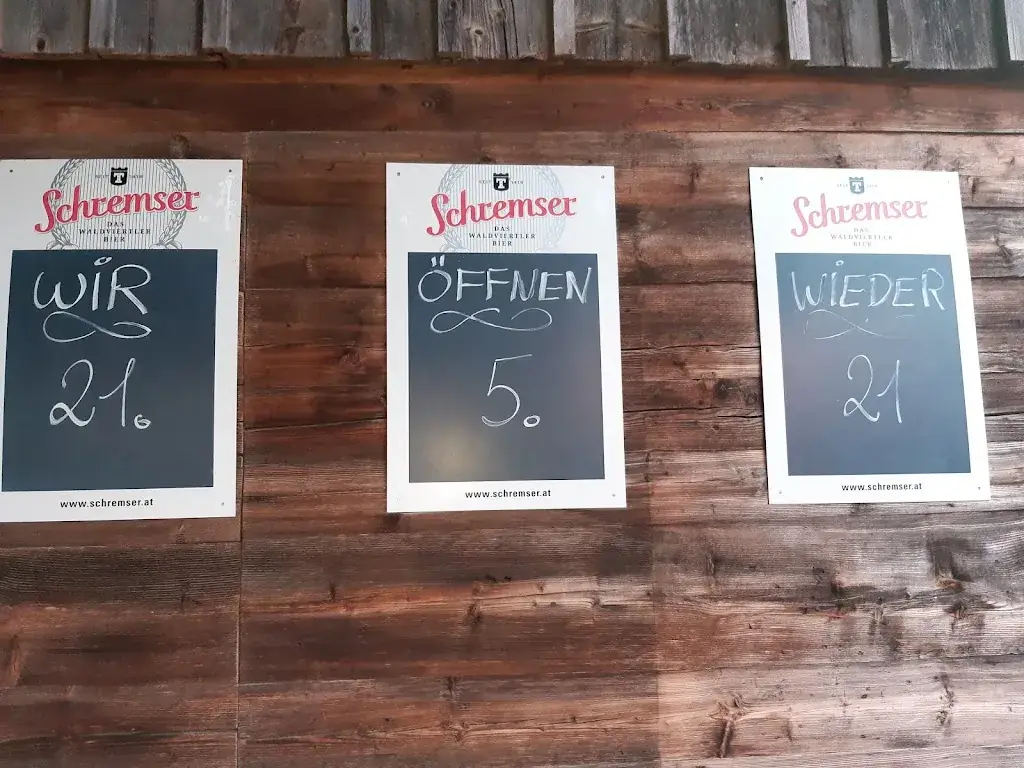 Schremser
DAS
WALDVIERTLER
BIER
WIR
21.
www.schremser.at
Schremser
DAS
WALDVIERTLER
BIER
ÖFFNEN
5.
www.schremser.at
Schremser
DAS
WALDVIERTLER
BIER
WIEDER
21
www.schremser.at